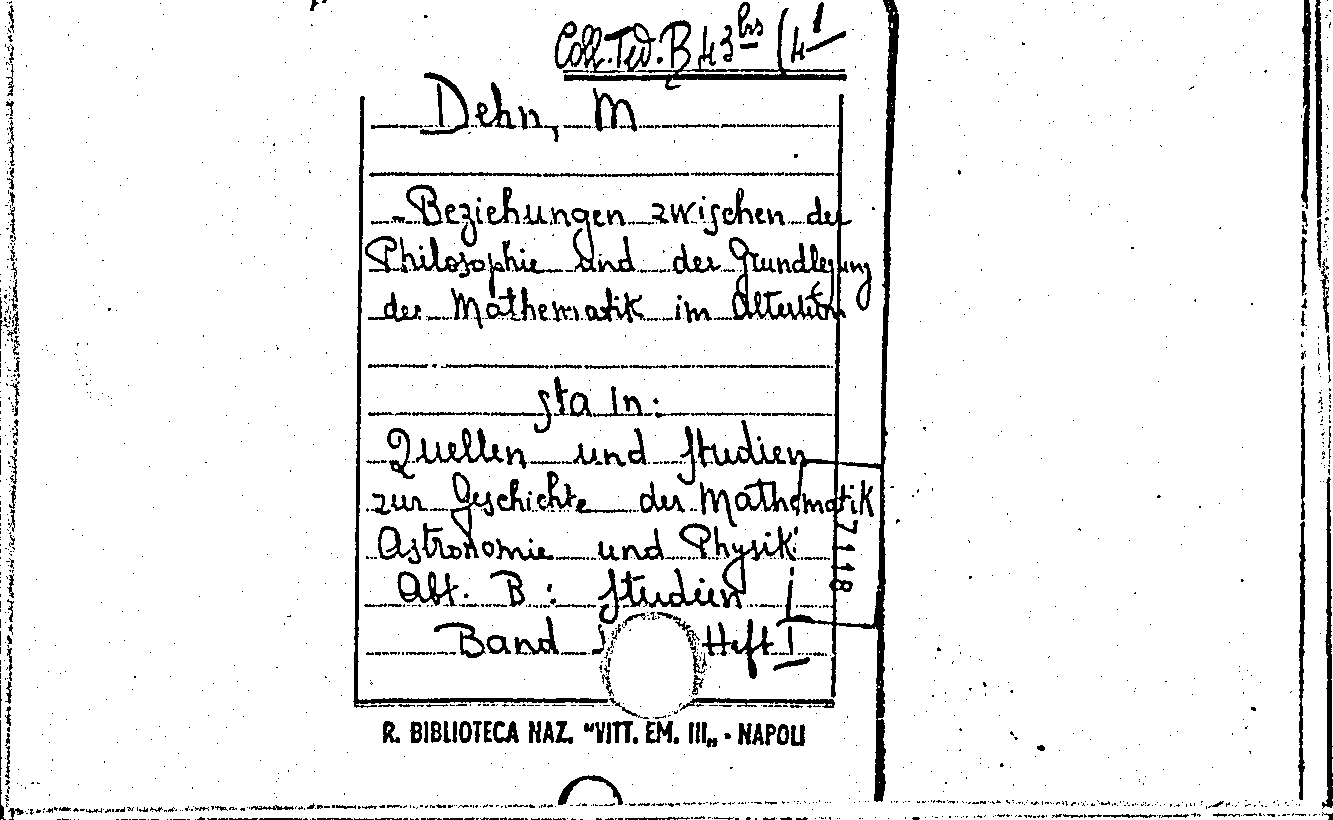 Coll. Ted. B 43 bis (4 1
Dehn, M
- Beziehungen zwischen der
Philosophie und der Grundlegung
der Mathematik im Altertum
sta in:
Quellen und Studien
zur Geschichte der Mathematik
Astronomie und Physik
Abt. B: Studien
7118
Band Heft I
R. BIBLIOTECA NAZ. "VITT. EM. III„ - NAPOLI